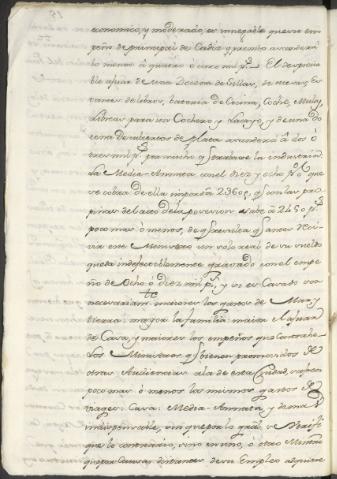 economico, y moderado, es innegable que se em-
peña de principal de Cadiz y premio ascenderá
lo menos á quatro ó cinco mil p.s El desprecia-
ble ajuar de una Decena de sillas, de mesas, Es-
tantes de libros, bateria de Cocina, Coche, Mulas,
Libreas para un Cochero y Lacayo, y de una do-
cena de cubiertos de plata ascenderá á dos ó
tres mil p.s por mucho q.e se estreche la industria
la Media-Annata con el diez y ocho p.r % que
se cobra de ella importa 2360 p.s q.e con las pro-
pinas del acto de la posesion sube á 2450 p.s
poco mas ó menos, de q.e resulta q.e sin reci-
vir este Ministro un solo real de su sueldo
queda indefectiblemente gravado con el empe-
ño de ocho ó Diez mil p.s, y si es Casado son
necesariam.te maiores los gastos de Mar, y
tierra: mayor la familia: maior el ajuar
de Casa, y maiores los empeños que contrahe
los Ministros q.e vienen promovidos de
otras Audiencias á la de esta Ciudad, sufren
poco mas ó menos los mismos gastos de
viages: Casa: Media-Annata, y demas
indispensable, sin que por lo gral se verifi-
que lo contrario, sino en uno, ó otro Ministro
que por Causas distantes de su Empleo adquiere